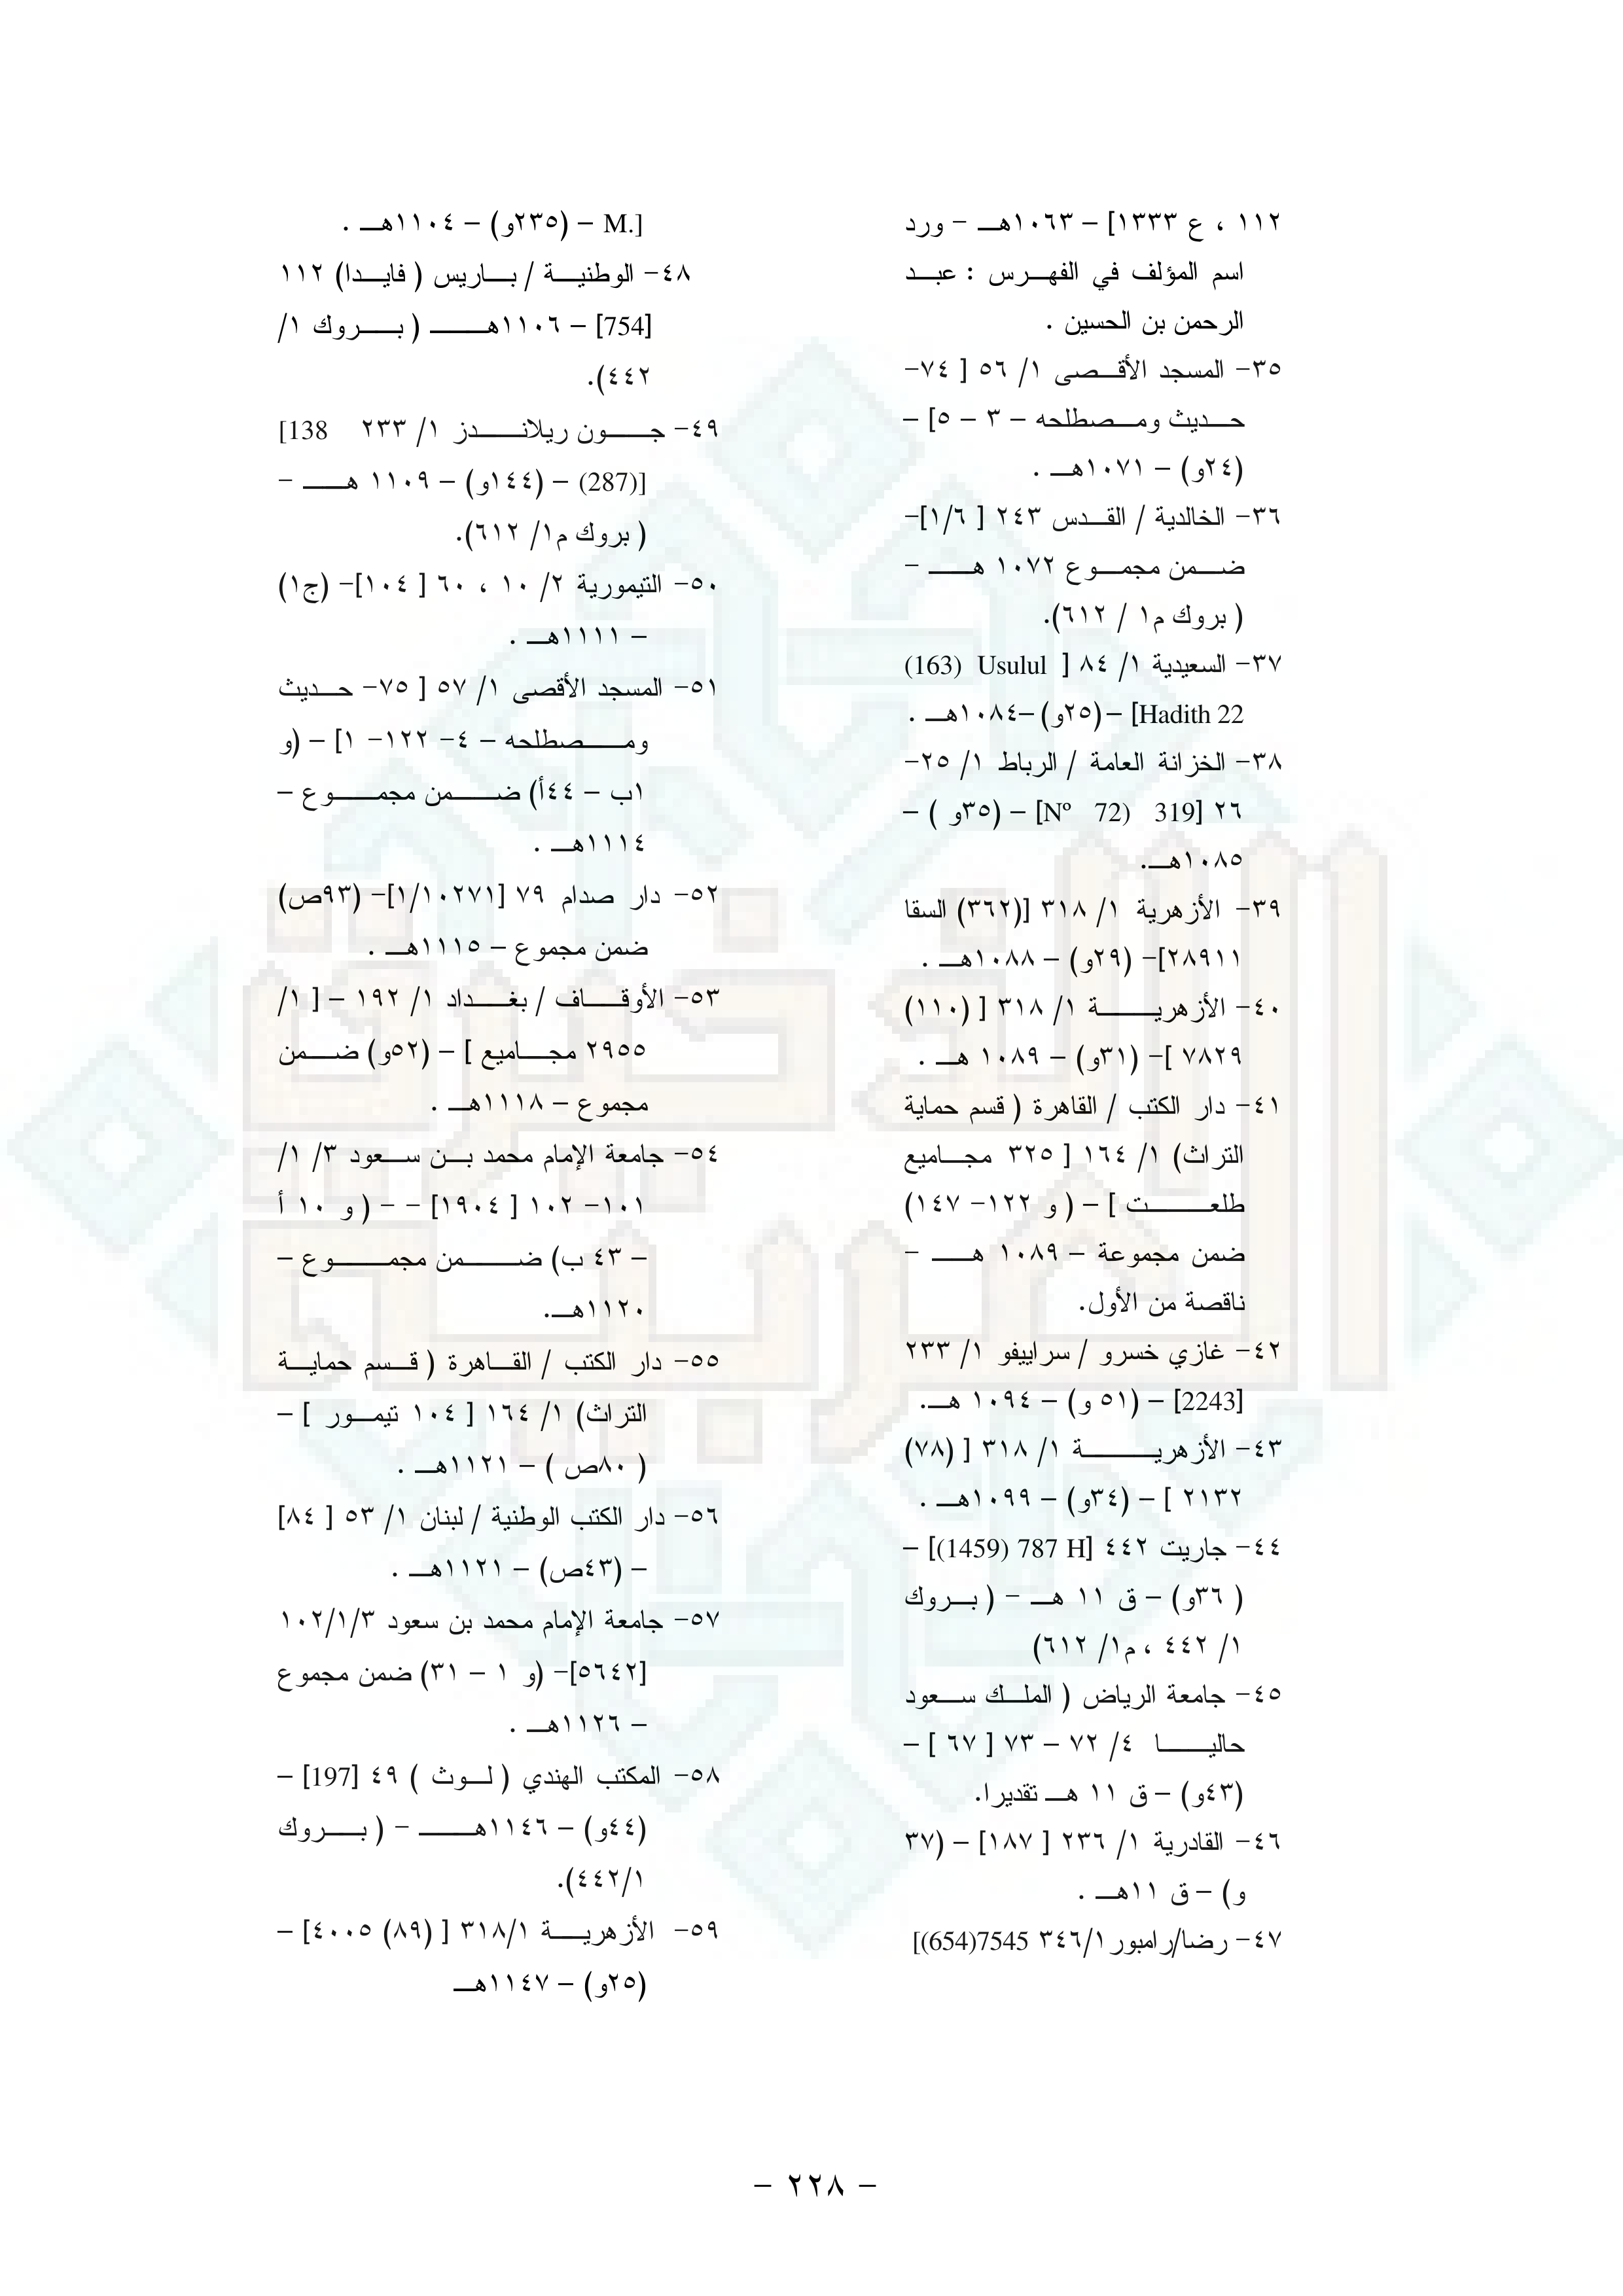 ١١٢ ، ع ١٣٣٣] – ١٠٦٣هـ - ورد
اسم المؤلف في الفهرس : عبد
الرحمن بن الحسين .
٣٥- المسجد الأقصى ١/ ٥٦ [ ٧٤-
حديث ومصطلحه – ٣ – ٥] –
(٢٤و) – ١٠٧١هـ .
٣٦- الخالدية / القدس ٢٤٣ [ ١/٦]-
ضمن مجموع ١٠٧٢ هـ -
( بروك م١ / ٦١٢).
٣٧- السعيدية ١/ ٨٤ [ Usulul (163)
Hadith 22] – (٢٥و) –١٠٨٤هـ .
٣٨- الخزانة العامة / الرباط ١/ ٢٥-
٢٦ [319 (72 Nº] – (٣٥و ) –
١٠٨٥هـ.
٣٩- الأزهرية ١/ ٣١٨ [(٣٦٢) السقا
٢٨٩١١]- (٢٩و) – ١٠٨٨هـ .
٤٠- الأزهرية ١/ ٣١٨ [ (١١٠)
٧٨٢٩ ]- (٣١و) – ١٠٨٩ هـ .
٤١- دار الكتب / القاهرة ( قسم حماية
التراث) ١/ ١٦٤ [ ٣٢٥ مجاميع
طلعت ] – ( و ١٢٢- ١٤٧)
ضمن مجموعة – ١٠٨٩ هـ -
ناقصة من الأول.
٤٢- غازي خسرو / سراييفو ١/ ٢٣٣
[2243] – (٥١ و) – ١٠٩٤ هـ.
٤٣- الأزهرية ١/ ٣١٨ [ (٧٨)
٢١٣٢ ] – (٣٤و) – ١٠٩٩هـ .
٤٤- جاريت ٤٤٢ [787 H (1459)] –
( ٣٦و) – ق ١١ هـ - ( بروك
١/ ٤٤٢ ، م١/ ٦١٢)
٤٥- جامعة الرياض ( الملك سعود
حاليا ٤/ ٧٢ – ٧٣ [ ٦٧ ] –
(٤٣و) – ق ١١ هـ تقديرا.
٤٦- القادرية ١/ ٢٣٦ [ ١٨٧] – (٣٧
و) – ق ١١هـ .
٤٧- رضا/رامبور ٣٤٦/١ 7545(654)]
M.] – (٢٣٥و) – ١١٠٤هـ .
٤٨- الوطنية / باريس ( فايدا) ١١٢
[754] – ١١٠٦هـ ( بروك ١/
٤٤٢).
٤٩- جون ريلاندز ١/ ٢٣٣ [138
(287)] – (١٤٤و) – ١١٠٩ هـ -
( بروك م١/ ٦١٢).
٥٠- التيمورية ٢/ ١٠ ، ٦٠ [ ١٠٤]- (ج١)
– ١١١١هـ .
٥١- المسجد الأقصى ١/ ٥٧ [ ٧٥- حديث
ومصطلحه – ٤- ١٢٢- ١] – (و
١ب – ٤٤أ) ضمن مجموع –
١١١٤هـ .
٥٢- دار صدام ٧٩ [١/١٠٢٧١]- (٩٣ص)
ضمن مجموع – ١١١٥هـ .
٥٣- الأوقاف / بغداد ١/ ١٩٢ – [ ١/
٢٩٥٥ مجاميع ] – (٥٢و) ضمن
مجموع – ١١١٨هـ .
٥٤- جامعة الإمام محمد بن سعود ٣/ ١/
١٠١- ١٠٢ [ ١٩٠٤] - - ( و ١٠ أ
– ٤٣ ب) ضمن مجموع –
١١٢٠هـ.
٥٥- دار الكتب / القاهرة ( قسم حماية
التراث) ١/ ١٦٤ [ ١٠٤ تيمور ] –
( ٨٠ص ) – ١١٢١هـ .
٥٦- دار الكتب الوطنية / لبنان ١/ ٥٣ [ ٨٤]
– (٤٣ص) – ١١٢١هـ .
٥٧- جامعة الإمام محمد بن سعود ١٠٢/١/٣
[٥٦٤٢]- (و ١ – ٣١) ضمن مجموع
– ١١٢٦هـ .
٥٨- المكتب الهندي ( لوث ) ٤٩ [197] –
(٤٤و) – ١١٤٦هـ - ( بروك
٤٤٢/١).
٥٩- الأزهرية ٣١٨/١ [ (٨٩) ٤٠٠٥] –
(٢٥و) – ١١٤٧هـ
– ٢٢٨ –
الذخيرة
العربية